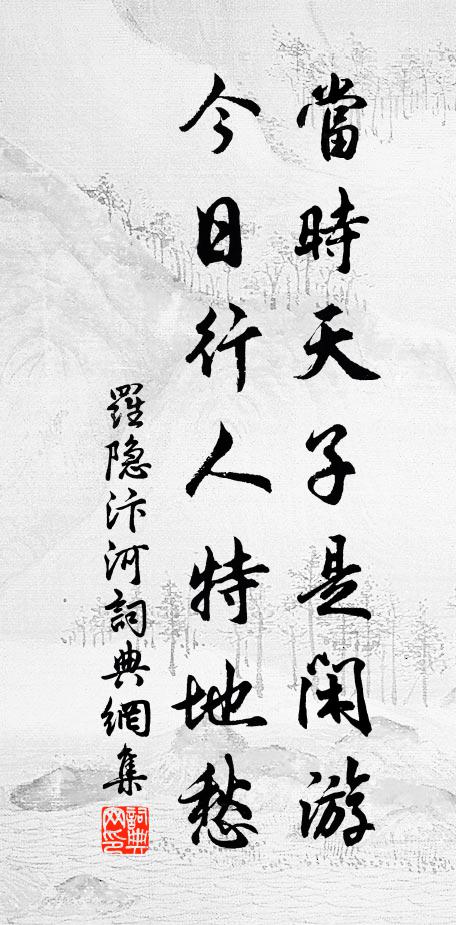 當時天子是閑游
今日行人特地愁
羅隐汴河詞典網集
詞典网印